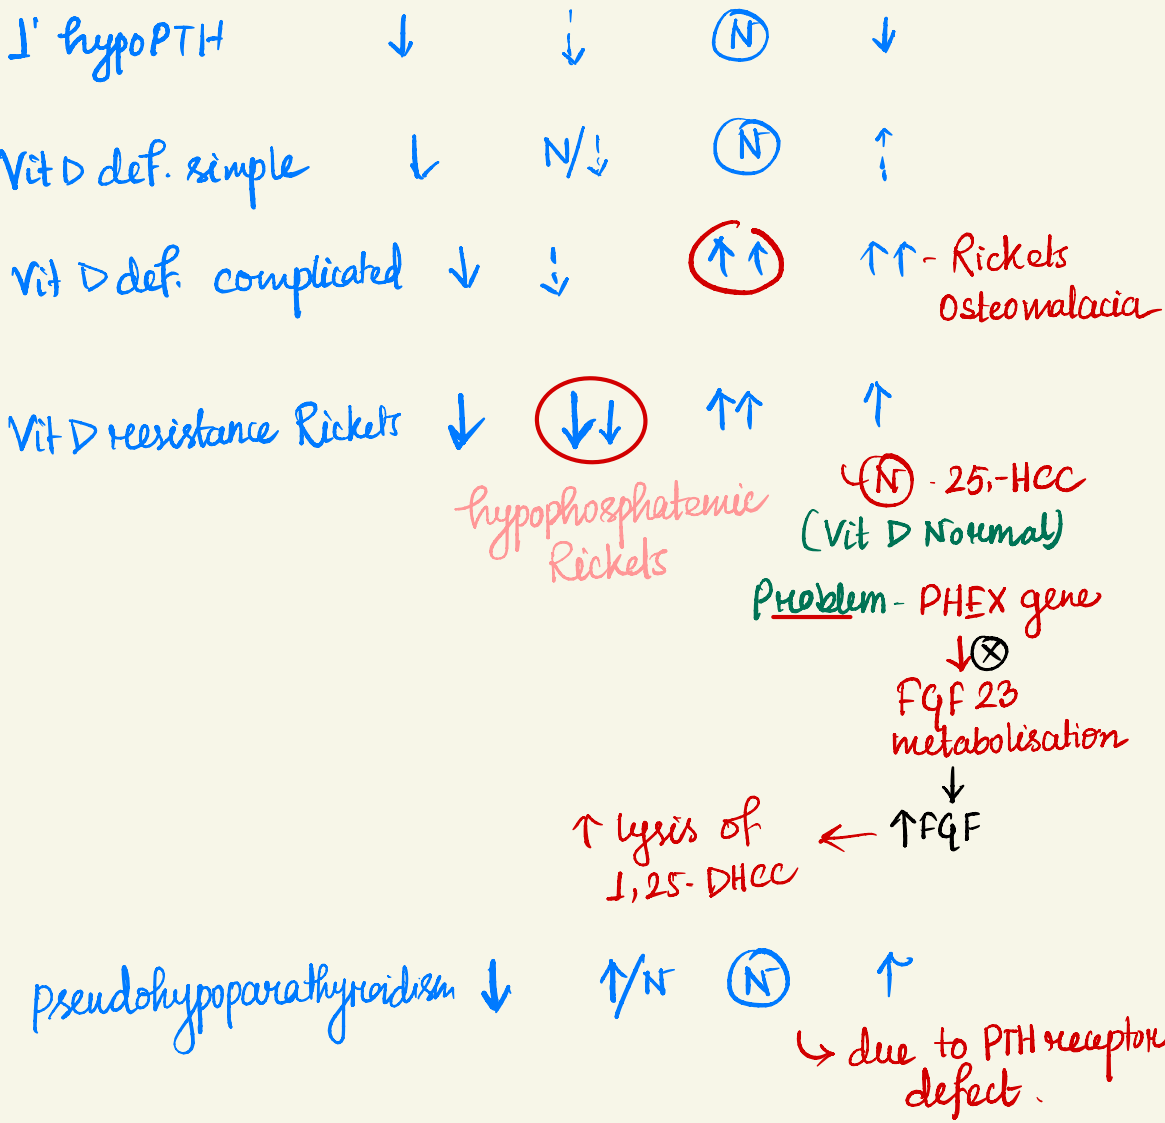 1' hypoPTH ↓ ↓ N ↓
Vit D def. simple ↓ N/↓ N ↑
Vit D def. complicated ↓ ↓ ↑↑ ↑↑ - Rickets
Osteomalacia
Vit D resistance Rickets ↓ ↓↓ ↑↑ ↑
N - 25,-HCC
hypophosphatemic
Rickets
(Vit D Normal)
Problem - PHEX gene
↓ ⊗
FGF 23
metabolisation
↓
↑ lysis of ← ↑FGF
1,25-DHCC
Pseudohypoparathyroidism ↓ ↑/N N ↑
↳ due to PTH receptor
defect.